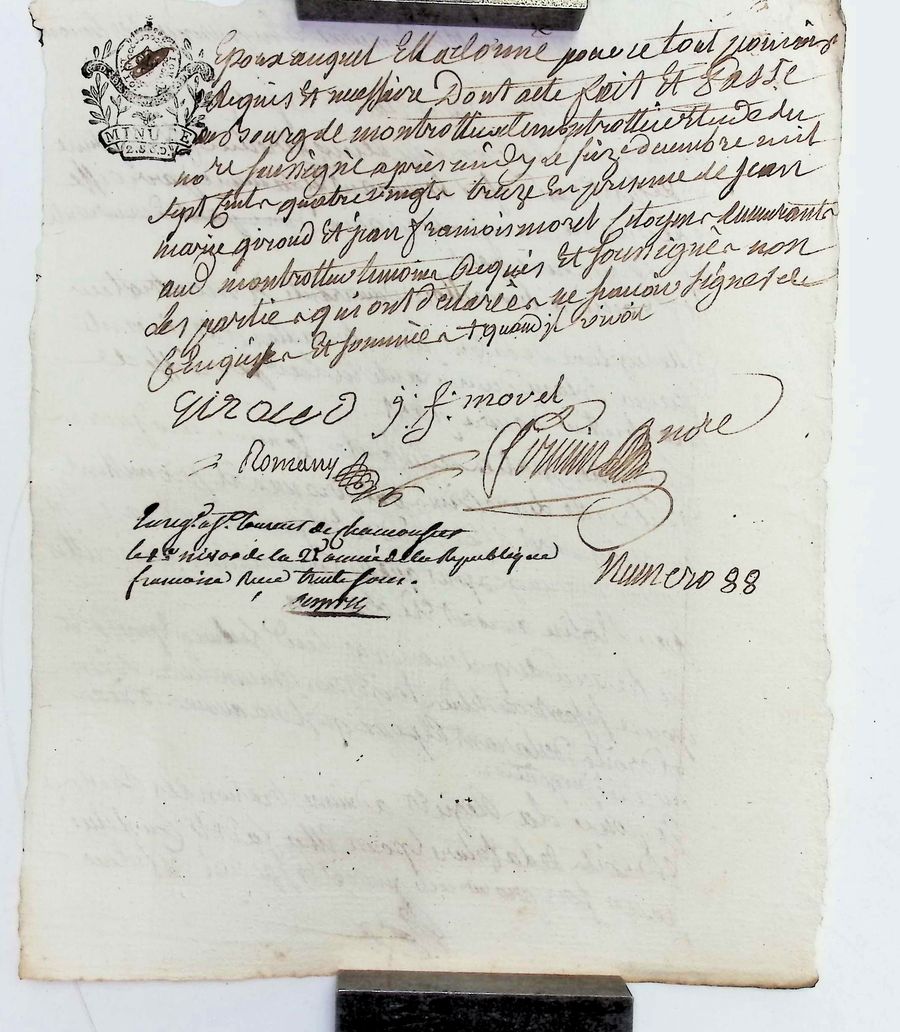 MINUTE
2.S.6.D.
Epoux auquel Elle a donné pour ce tout pouvoir
Requis Et necessaire Dont acte fait Et Passé
au Bourg de montrottier etude du
no.re soussigné apres midy le seize decembre mil
sept Cent quatre vingt treize En presence de jean
marie giroud Et jean francois morel Citoyens demeurants
aud montrottier temoins Requis Et soussignés non
les parties qui ont déclarées ne savoir signer de
Enquises Et sommées † quand il vivoit
Giroud j. f. morel
Romany andré
Enreg. a St. Laurent de chamousset
le nivose de la 2e année de la Republique
francaise Recu trente sous.
Numero 88